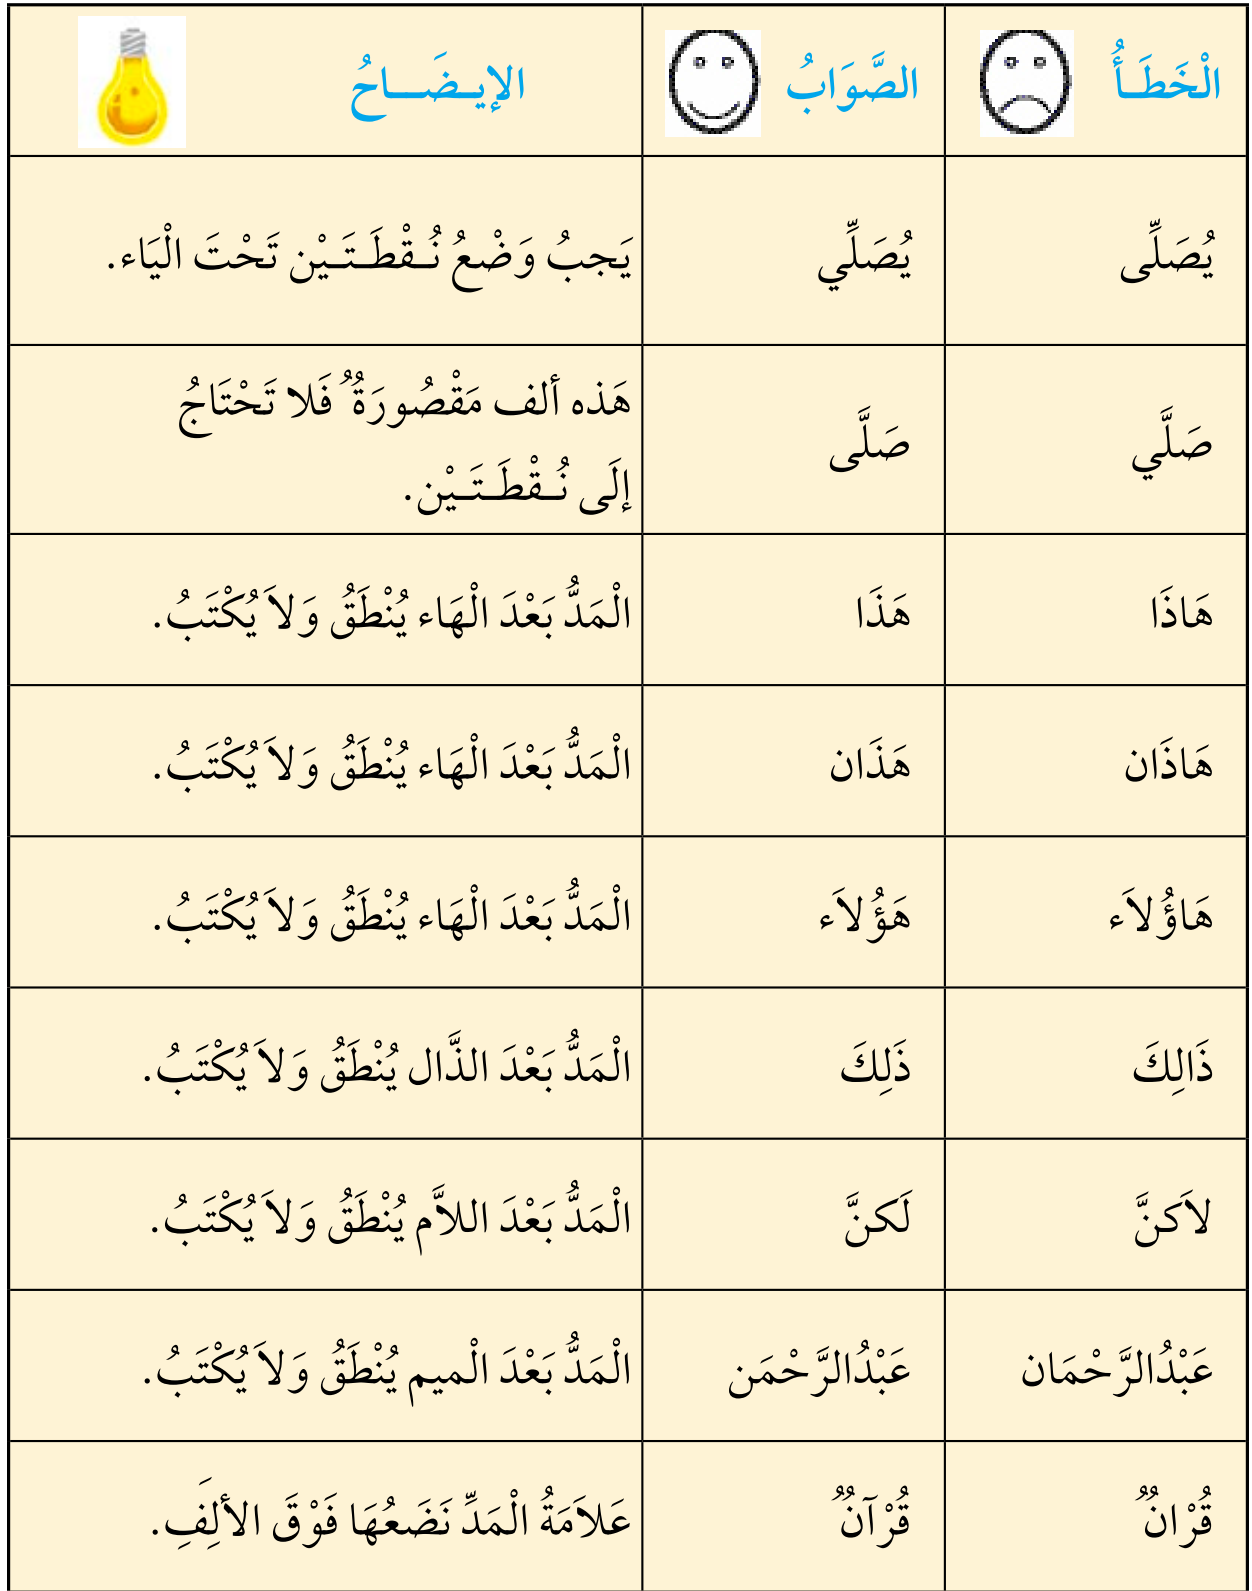 الْخَطَـأُ الصَّوَابُ الإيـضَـــاحُ
يُصَلِّى يُصَلِّي يَجبُ وَضْعُ نُـقْطَـتَـيْن تَحْتَ الْيَاء.
صَلَّي صَلَّى هَذه ألف مَقْصُورَةٌ فَلا تَحْتَاجُ
إلَى نُـقْطَـتَـيْن.
هَاذَا هَذَا الْمَدُّ بَعْدَ الْهَاء يُنْطَقُ وَلاَ يُكْتَبُ.
هَاذَان هَذَان الْمَدُّ بَعْدَ الْهَاء يُنْطَقُ وَلاَ يُكْتَبُ.
هَاؤُلاَء هَؤُلاَء الْمَدُّ بَعْدَ الْهَاء يُنْطَقُ وَلاَ يُكْتَبُ.
ذَالِكَ ذَلِكَ الْمَدُّ بَعْدَ الذَّال يُنْطَقُ وَلاَ يُكْتَبُ.
لاَكنَّ لَكنَّ الْمَدُّ بَعْدَ اللاَّم يُنْطَقُ وَلاَ يُكْتَبُ.
عَبْدُالرَّحْمَان عَبْدُالرَّحْمَن الْمَدُّ بَعْدَ الْميم يُنْطَقُ وَلاَ يُكْتَبُ.
قُرْانٌ قُرْآنٌ عَلاَمَةُ الْمَدِّ نَضَعُهَا فَوْقَ الأَلِفِ.